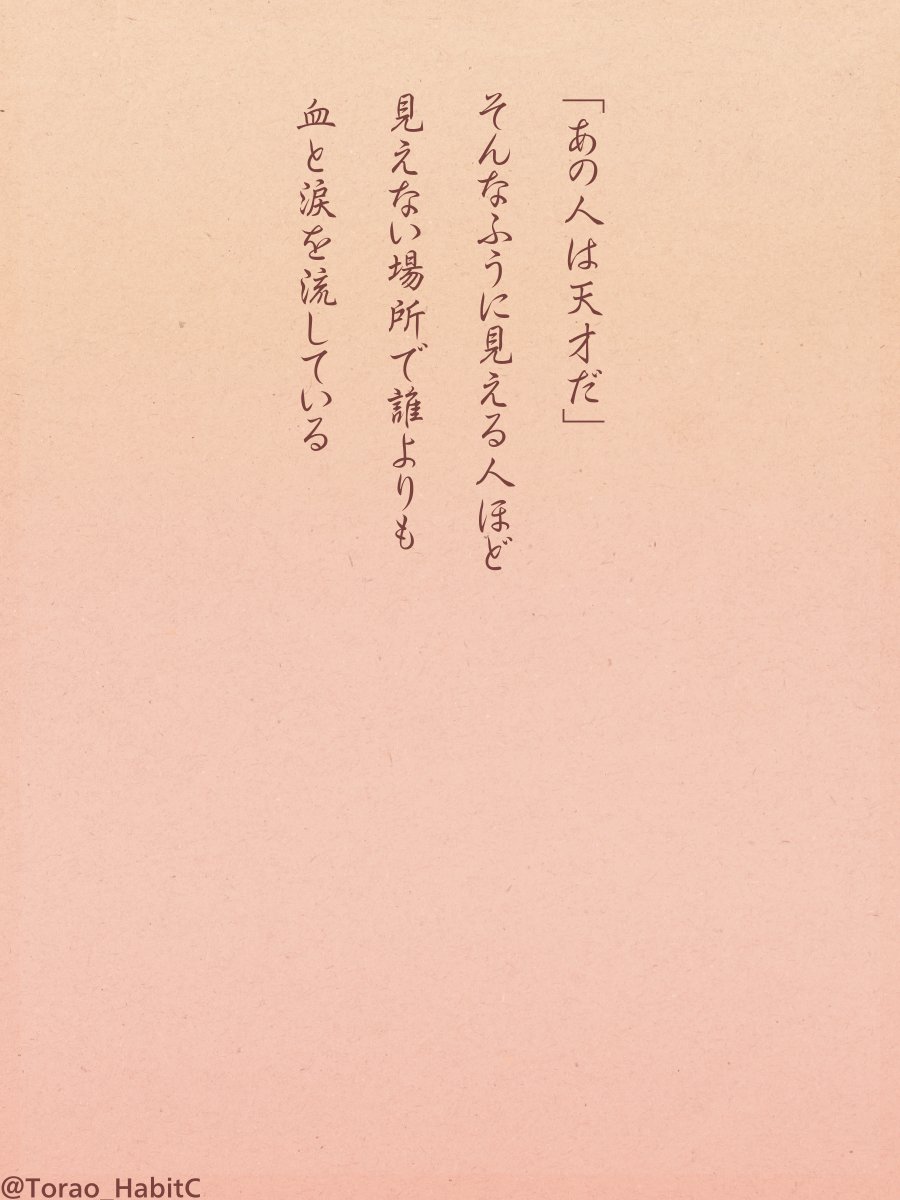 「あの人は天才だ」
そんなふうに見える人ほど
見えない場所で誰よりも
血と涙を流している
@Torao_HabitC